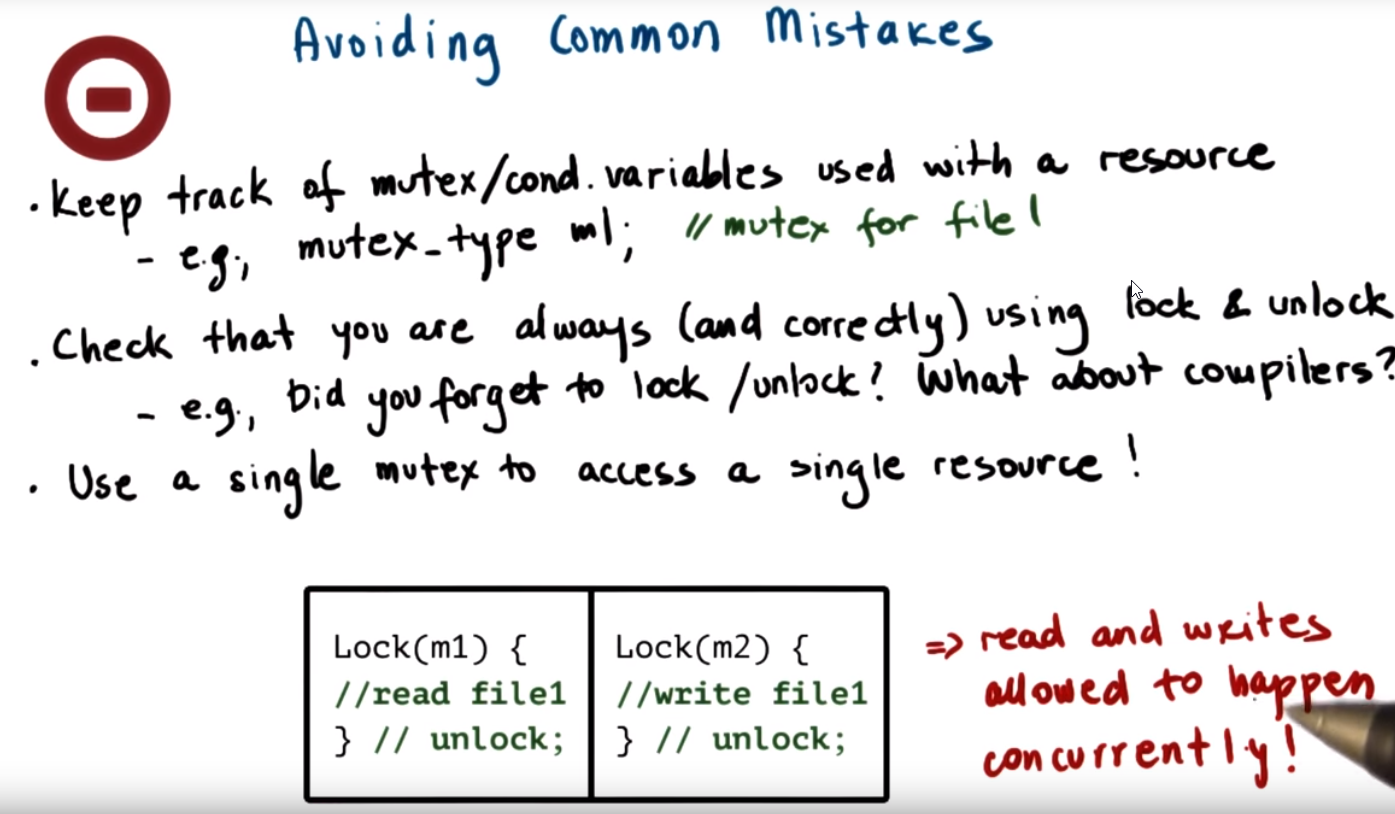 Avoiding Common Mistakes
. Keep track of mutex/cond. variables used with a resource
- e.g., mutex_type m1; // mutex for file 1
. Check that you are always (and correctly) using lock & unlock
- e.g., Did you forget to lock /unlock? What about compilers?
. Use a single mutex to access a single resource!
Lock(m1) {
//read file1
} // unlock;
Lock(m2) {
//write file1
} // unlock;
=> read and writes
allowed to happen
concurrently!